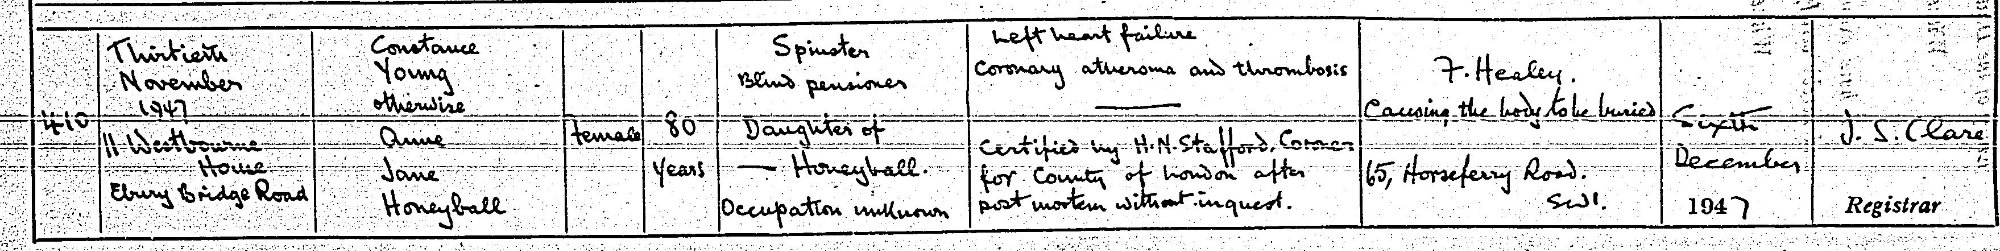 410
Thirtieth
November
1947
11 Westbourne
House
Ebury Bridge Road
Constance
Young
otherwise
Anne
Jane
Honeyball
Female
80
years
Spinster
Blind pensioner
Daughter of
— Honeyball.
Occupation unknown
Left heart failure
Coronary atheroma and thrombosis
Certified by H.N. Stafford. Coroner
for County of London after
post mortem without inquest.
F. Healey.
Causing the body to be buried
65, Horseferry Road.
SW1.
Sixth
December
1947
J. S. Clare
Registrar